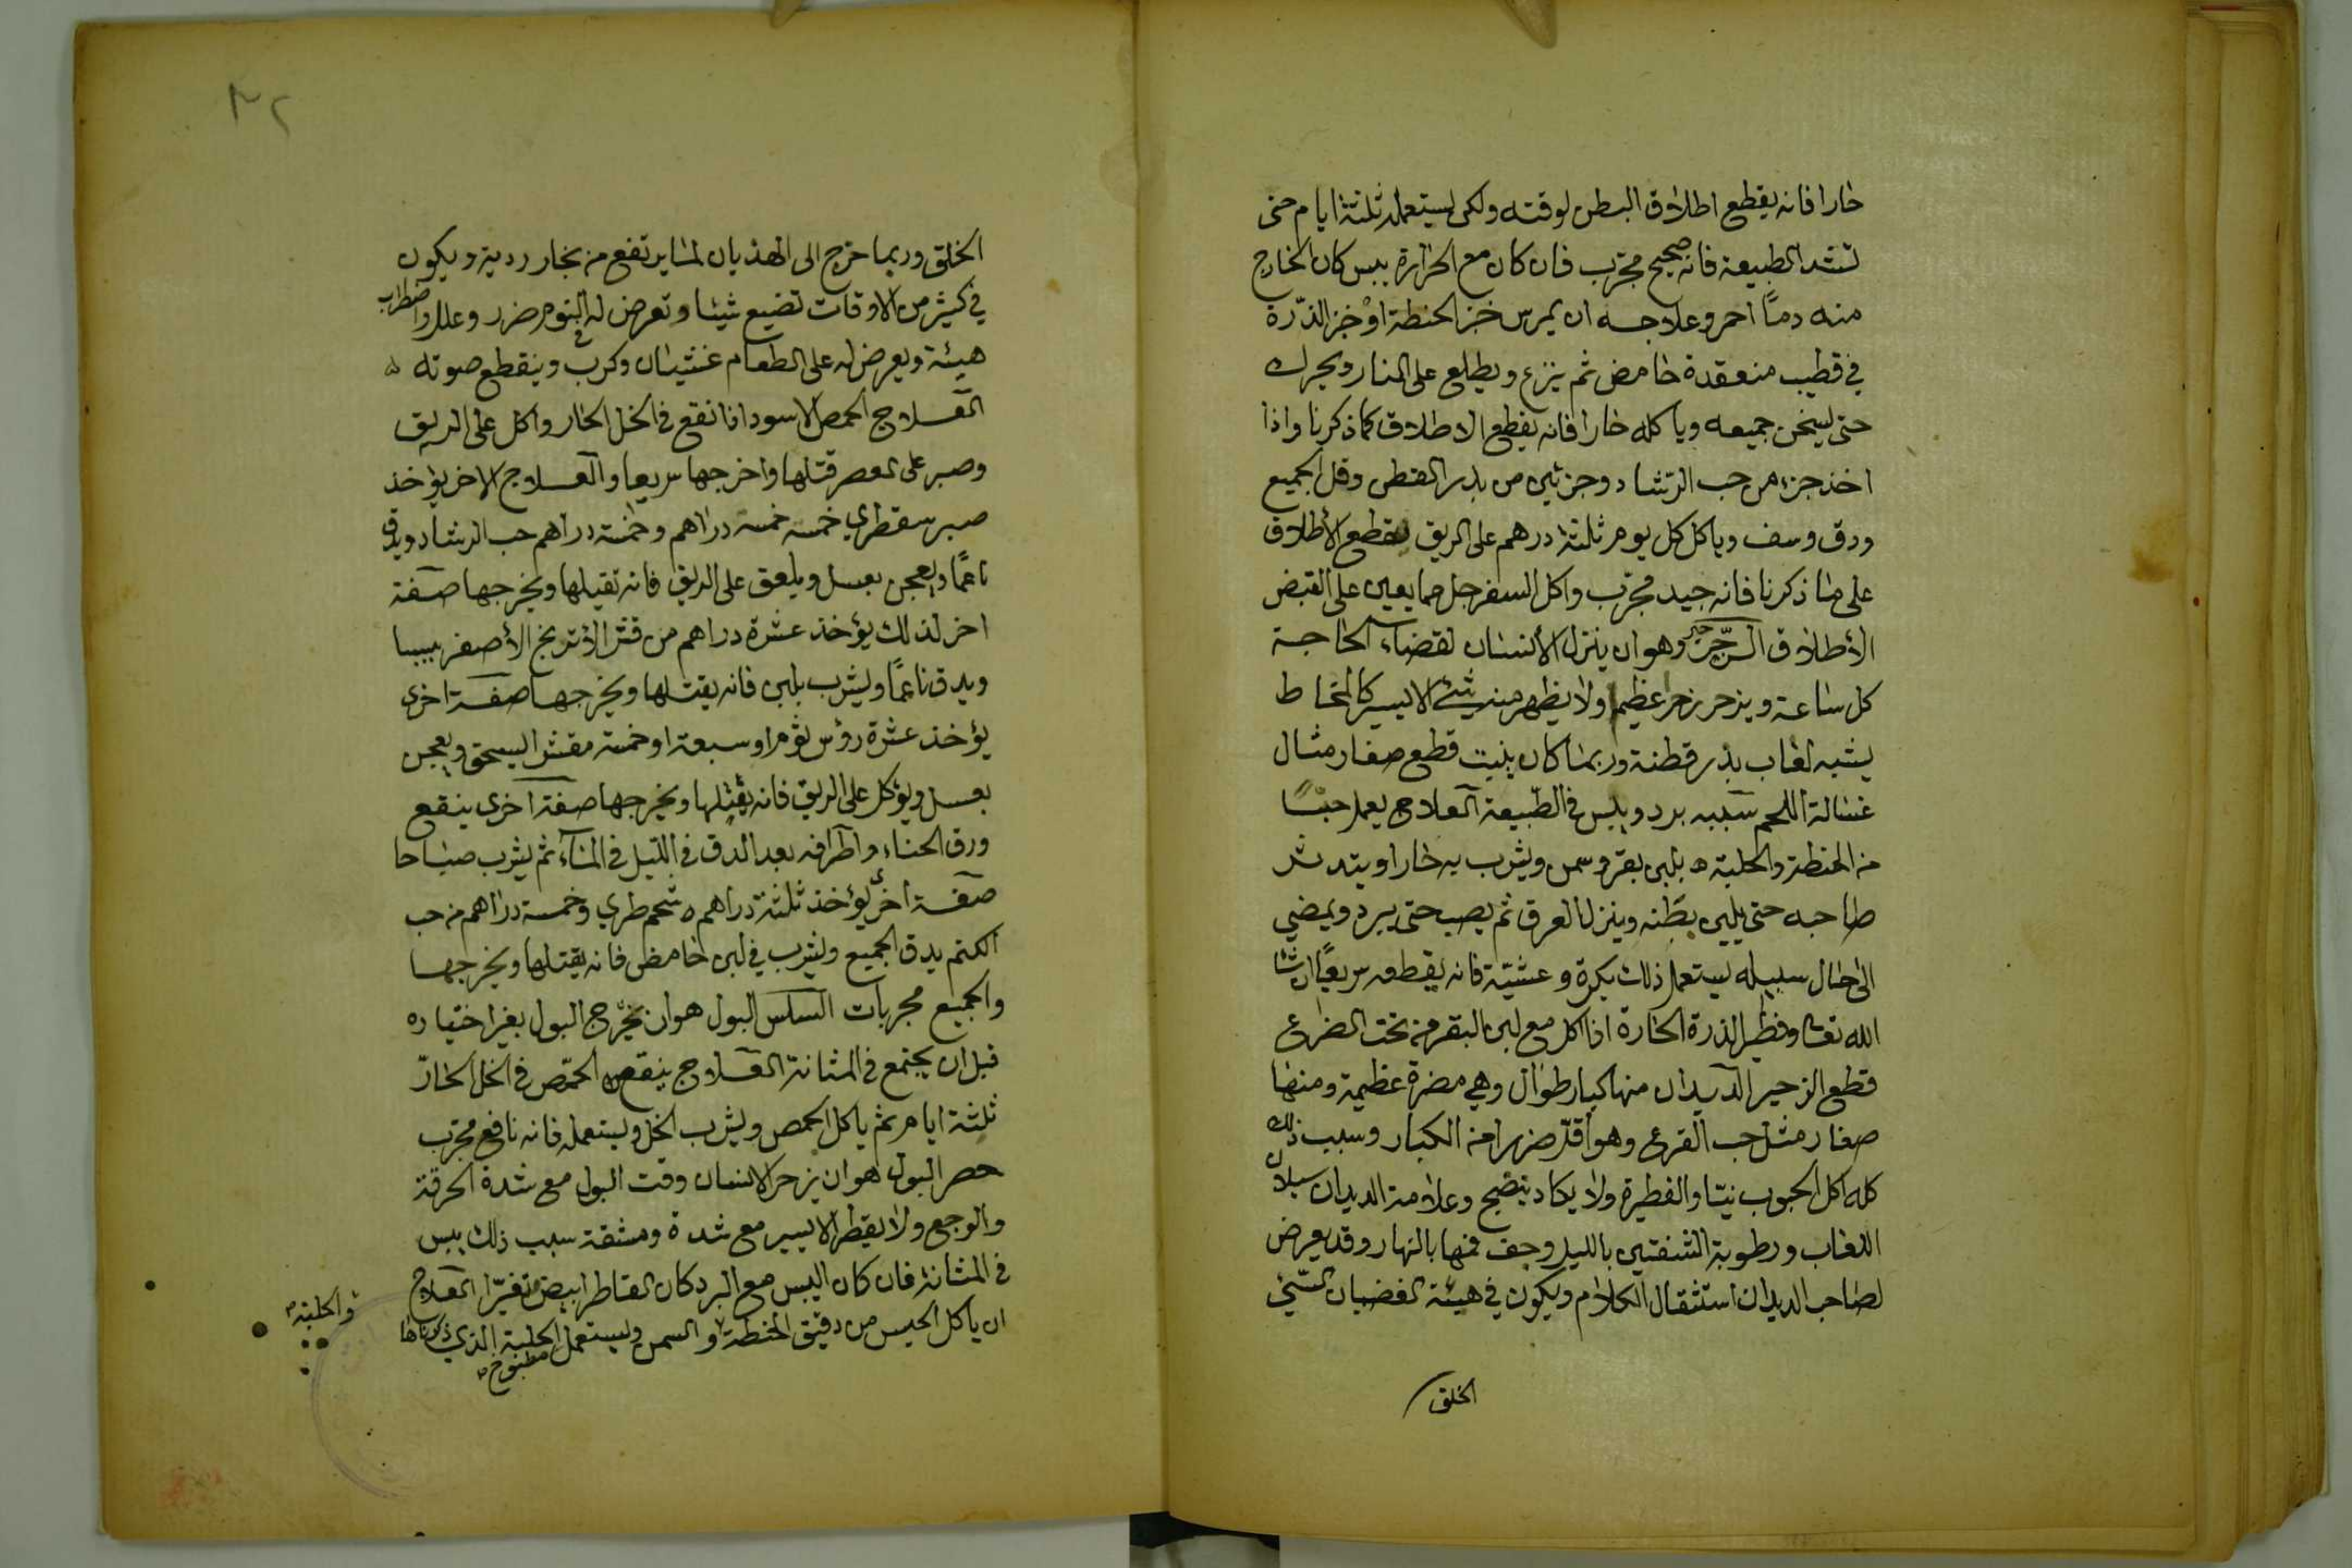 حارا فانه يقطع اطلاق البطن لوقته ولكن يستعمله ثلثة ايام حتى
تشتد الطبيعة فانه صحيح مجرب فان كان مع الحرارة يبس كان الخارج
منه دمًا احمر وعلاجه ان يمرس خبز الحنطة او خبز الذرة
في قطيب منعقدة حامض ثم ينزع ويطلع على النار ويحرك
حتى يسخن جميعه وياكله حارا فانه يقطع الاطلاق كما ذكرنا واذا
اخذ جزء من حب الرشاد وجزئين من بذر القطن وقلى الجميع
ودق وسف وياكل كل يوم ثلثة درهم على الريق يقطع الأطلاق
على ما ذكرنا فانه جيد مجرب واكل السفرجل مما يعين على القبض
الأطلاق الزحير وهو ان ينزل الأنسان لقضاء الحاجة
كل ساعة ويزحر زحرا عظيما ولا يظهر منه شيئ الا يسير كالمخاط
يشبه لعاب بذر قطنة وربما كان بنيت قطع صغار مثال
غسالة اللحم سببه برد ويبس في الطبيعة العلاج يعمل حبسا
من الحنطة والحلبة بلبن بقر وسمن ويشرب به حارا ويتدثر
صاحبه حتى يلين بطنه وينزل العرق ثم يصب حتى يبرد ويمضي
الى حال سبيله يستعمل ذلك بكرة وعشية فانه يقطعه سريعًا ان شا
الله تعا وفطير الذرة الحارة اذا اكل مع لبن البقر من تحت الضرع
قطع الزحير الديدان منها كبار طوال وهي مضرة عظيمة ومنها
صغار مثل حب القرع وهو اقل ضررا من الكبار وسبب ذلك
كله اكل الحبوب نيّا والفطيرة ولا يكاد ينضج وعلامة الديدان سيلان
اللعاب ورطوبة الشفتين بالليل وجف فمها بالنهار وقد يعرض
لصاحب الديدان استثقال الكلام ويكون في هيئة الغضبان السيّئ
الخلق
٣٢
الخلق وربما خرج الى الهذيان لما يرتفع من بخار ردية ويكون
في كثير من الاوقات تضيع شيئا وتعرض له في النوم ضرر وعلل واضطراب
هيئة ويعرض له على الطعام غثيان وكرب وينقطع صوته
العلاج الحمص الاسود اذا نقع في الخل الحار واكل على الريق
وصبر على العصر قتلها واخرجها سريعا والعلاج الاخر يؤخذ
صبر سقطري خمسه خمسه دراهم وخمسة دراهم حب الرشاد ويدق
ناعمًا ويعجن بعسل ويلعق على الريق فانه تقيلها ويخرجها صفة
اخر لذلك يؤخذ عشرة دراهم من قشر الأترنج الأصفر يبسا
ويدق ناعمًا ويشرب بلبن فانه يقتلها ويخرجها صفة اخرى
يؤخذ عشرة رؤس ثوم او سبعة او خمسة مقشر اليسحق ويعجن
بعسل ويؤكل على الريق فانه يقتلها ويخرجها صفة اخرى ينقع
ورق الحناء واطرافه بعد الدق في الليل في الماء ثم يشرب صباحا
صفة اخرى يؤخذ ثلثة دراهم شحم طري وخمسة دراهم من حب
الكتم يدق الجميع ويشرب في لبن حامض فانه يقتلها ويخرجها
والجميع مجربات السلس البول هو ان يخرج البول بغير اختياره
قبل ان يجتمع في المثانة العلاج ينقع الحمّص في الخل الحارّ
ثلثة ايام ثم ياكل الحمص ويشرب الخل ويستعمله فانه نافع مجرب
حصر البول هو ان يزحر الانسان وقت البول مع شدة الحرقة
والوجع ولا يقطر الا يسير مع شدة ومشقة سبب ذلك يبس
في المثانة فان كان اليبس مع البرد كان القاطر ابيض تغيّر العلاج
ان ياكل الحيس من دقيق الحنطة والسمن ويستعمل الحلبة الذي ذكرناها
مطبوخ
والحلبة